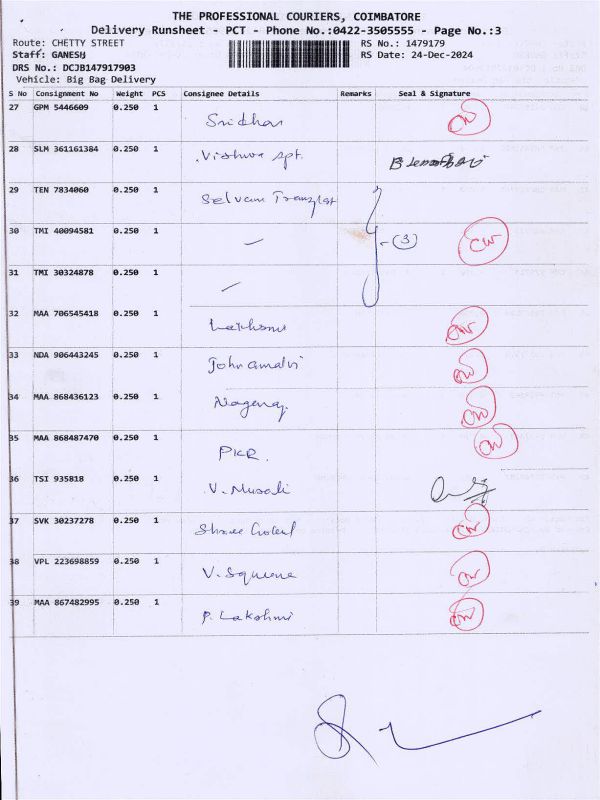 THE PROFESSIONAL COURIERS, COIMBATORE
Delivery Runsheet - PCT - Phone No.:0422-3505555 - Page No.:3
Route: CHETTY STREET RS No.: 1479179
Staff: GANESH RS Date: 24-Dec-2024
DRS No.: DCJB147917903
Vehicle: Big Bag Delivery
S No Consignment No Weight PCS Consignee Details Remarks Seal & Signature
27 GPM 5446609 0.250 1 Sridhar CW
28 SLM 361161384 0.250 1 Vishwa Apt.
29 TEN 7834060 0.250 1 Selvam
30 TMI 40094581 0.250 1 — (3) CW
31 TMI 30324878 0.250 1 —
32 MAA 706545418 0.250 1 CW
33 NDA 906443245 0.250 1 CW
34 MAA 868436123 0.250 1 Nagaraj. CW
35 MAA 868487470 0.250 1 PKR. CW
36 TSI 935818 0.250 1 V. Murali
37 SVK 30237278 0.250 1 Shree CW
38 VPL 223698859 0.250 1 V. Square CW
39 MAA 867482995 0.250 1 P. Lakshmi CW